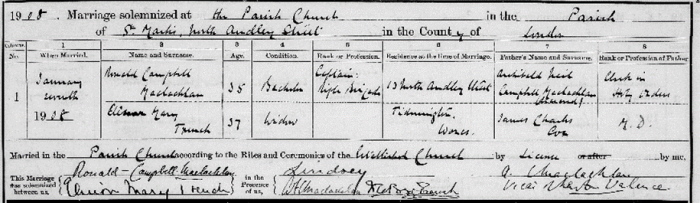 1908. Marriage solemnized at the Parish Church in the Parish
of St Marks, North Audley Street in the County of London
Columns. 1 2 3 4 5 6 7 8
No. When Married. Name and Surname. Age. Condition. Rank or Profession. Residence at the time of Marriage. Father's Name and Surname. Rank or Profession of Father
1 January seventh 1908 Ronald Campbell Maclachlan 35 Bachelor Captain Rifle Brigade 13 North Audley Street Archibald Neil Campbell Maclachlan Clerk in Holy Orders
Elinor Mary Trench 37 Widow Tidmington, Worcs. James Charles Cox M.D.
Married in the Parish Church according to the Rites and Ceremonies of the Established Church by Licence or after by me,
This Marriage was solemnized between us, Ronald Campbell Maclachlan
Elinor Mary Trench
in the Presence of us, Lindsey
A. Maclachlan
Vicar